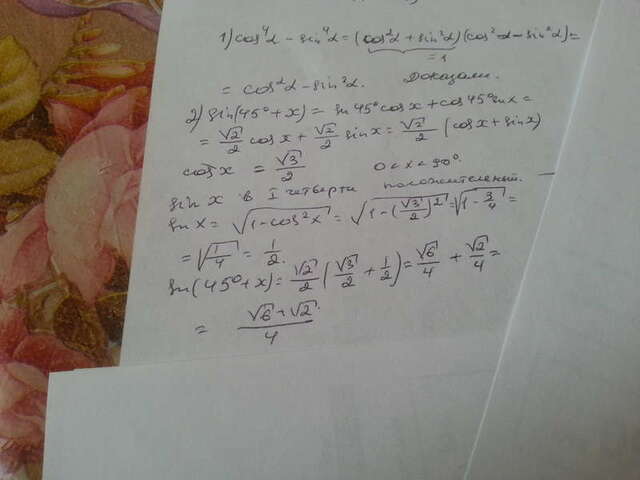 1) cos⁴α - sin⁴α = (cos²α + sin²α)(cos²α - sin²α) =
= 1
= cos²α - sin²α. Доказали.
2) sin(45° + x) = sin 45° cos x + cos 45° sin x =
= √2/2 cos x + √2/2 sin x = √2/2 (cos x + sin x)
cos x = √3/2 0 < x < 90°.
sin x в I четверти положительный.
sin x = √(1 - cos²x) = √(1 - (√3/2)²) = √(1 - 3/4) =
= √(1/4) = 1/2.
sin(45° + x) = √2/2 (√3/2 + 1/2) = √6/4 + √2/4 =
= (√6 + √2)/4